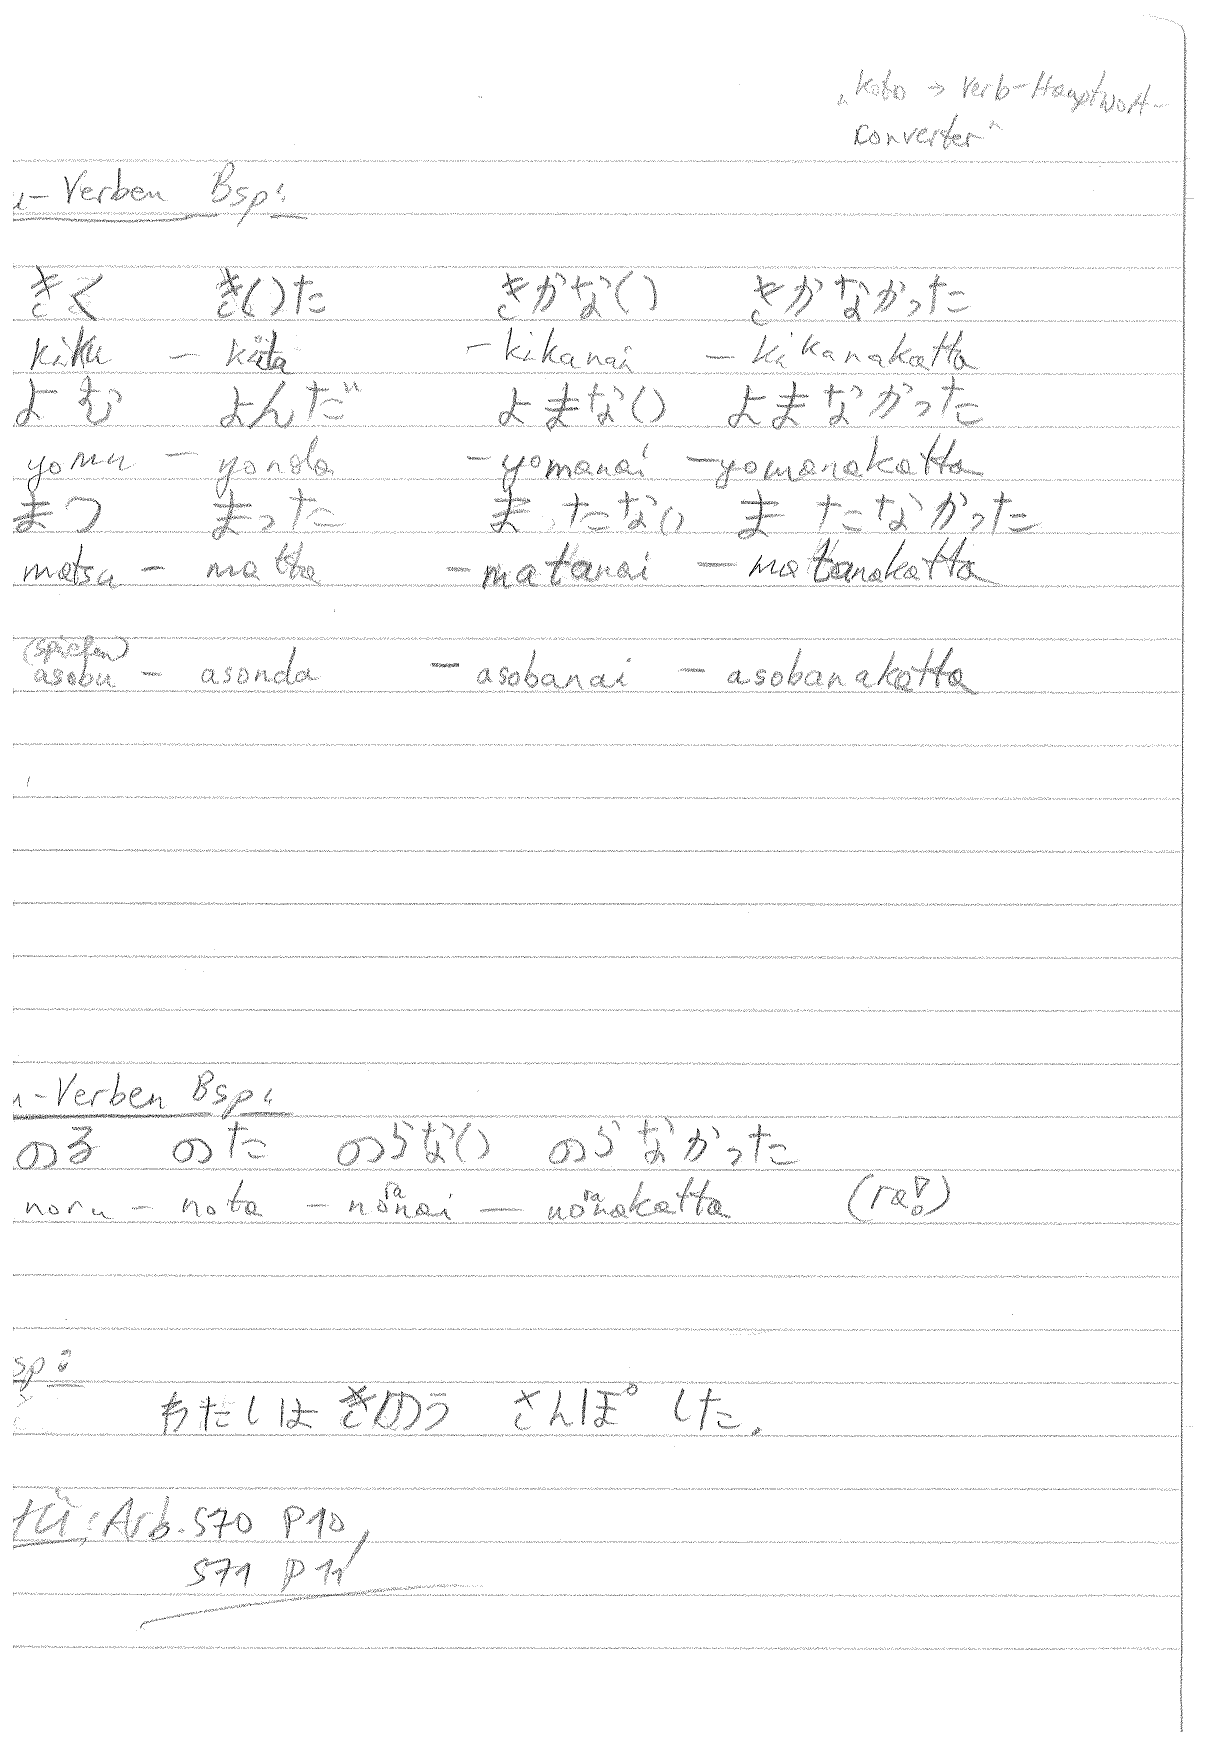 „Koto → Verb-Hauptwort-
Converter"
u-Verben Bsp:
きく きいた きかない きかなかった
kiku - kiita - kikanai - kikanakatta
よむ よんだ よまない よまなかった
yomu - yonda - yomanai - yomanakatta
まつ まった またない またなかった
matsu - matta - matanai - matanakatta
(spielen)
asobu - asonda - asobanai - asobanakatta
u-Verben Bsp:
のる のた のらない のらなかった
noru - nota - noranai - noranakatta (ra!)
sp:
わたしは きのう さんぽ した.
HÜ: Arb. S70 P10,
S71 P11